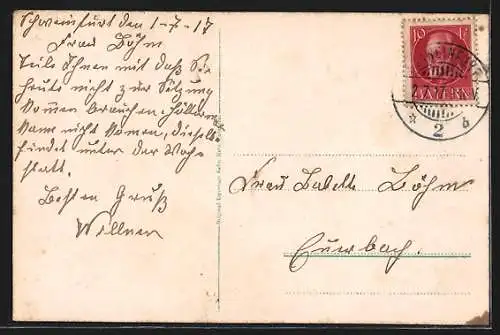 Schweinfurt den 1-7-17
Frau Böhm
Teile Ihnen mit daß Sie
heute nicht zur Sitzung
komen brauchen. Höller
kann nicht komen, dieselbe
findet unter der Woche
statt.
Besten Gruß
Willner
10
BAYERN
2 b
Frau Babett Böhm
Euerbach.